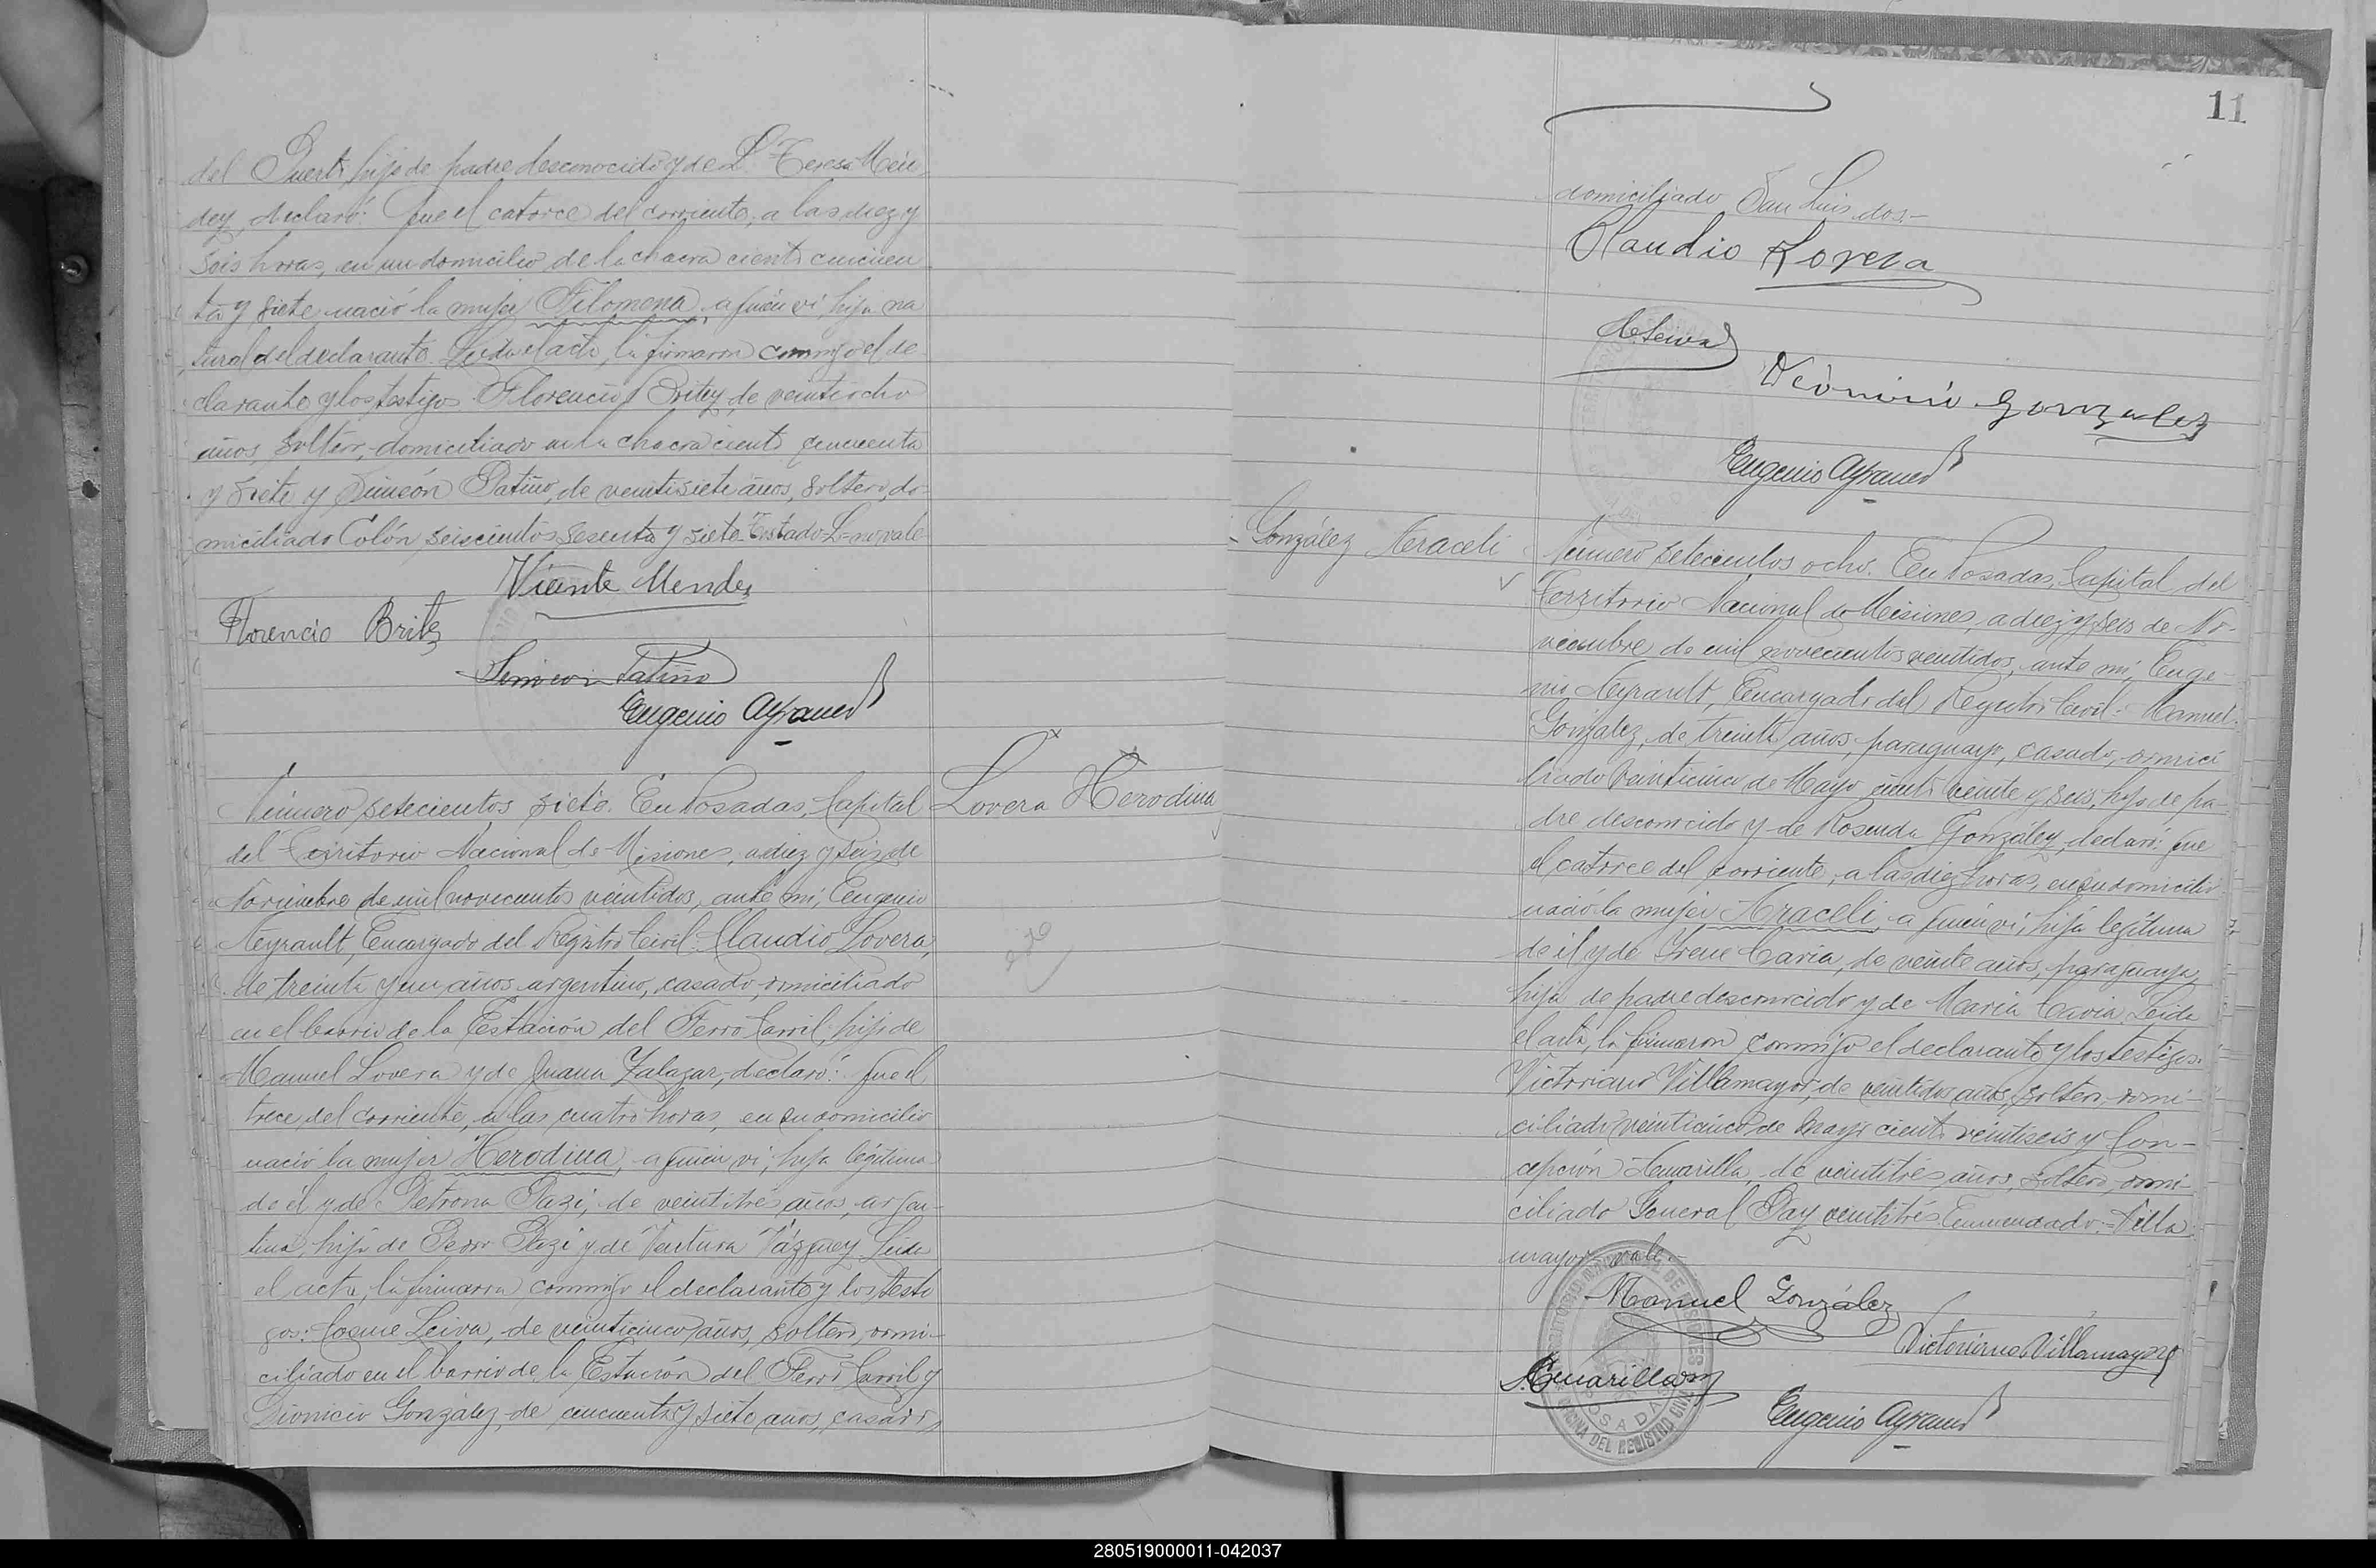 del Puerto, hijo de padre desconocido y de L Teresa Mén-
dez, declaró: Que el catorce del corriente, a las diez y
seis horas, en un domicilio de la chacra ciento cincuen-
ta y siete nació la mujer Filomena, a quien vi, hija na
tural del declarante. Leida el acta, la firmaron conmigo el de
clarante y los testigos Florencio Britez, de veintiocho
años, soltero, domiciliado en la chacra ciento cincuenta
y siete y Simeón Patiño, de veintisiete años, soltero, do-
miciliado Colón, seiscientos sesenta y siete. Testado: L=no vale
Vicente Mendez
Florencio Britez
Simeon Patiño
Eugenio Neyrault
Lovera Herodina
Número setecientos siete. En Posadas, Capital
del Territorio Nacional de Misiones, a diez y seis de
Noviembre de mil novecientos veintidos, ante mí, Eugenio
Neyrault, Encargado del Registro Civil: Claudio Lovera,
de treinta y un años, argentino, casado, domiciliado
en el barrio de la Estación del Ferro Carril, hijo de
Manuel Lovera y de Juana Zalazar, declaró: Que el
trece del corriente, a las cuatro horas, en su domicilio
nació la mujer Herodina, a quien vi, hija legítima
de él y de Petrona Pazi, de veintitrés años, argen-
tina, hija de Pedro Pazi y de Ventura Vázquez. Leida
el acta, la firmaron conmigo el declarante y los testi
gos: Cosme Leiva, de veinticinco años, soltero, domi-
ciliado en el barrio de la Estación del Ferro Carril y
Dionicio González, de cincuenta y siete años, casado,
11
domiciliado San Luis dos.-
Claudio Lovera
C. Leiva
Dionicio Gonzalez
Eugenio Neyrault
González Araceli
Número setecientos ocho. En Posadas, Capital del
Territorio Nacional de Misiones, a diez y seis de No-
viembre de mil novecientos veintidos, ante mí, Euge-
nio Neyrault, Encargado del Registro Civil: Manuel
González, de treinta años, paraguayo, casado, domici
liado Veinticinco de Mayo ciento veinte y seis, hijo de pa-
dre desconocido y de Rosenda González, declaró: Que
el catorce del corriente, a las diez horas, en su domicilio
nació la mujer Araceli, a quien vi, hija legítima
de él y de Irene Cavia, de veinte años, paraguaya,
hija de padre desconocido y de María Cavia. Leida
el acta, la firmaron conmigo el declarante y los testigos:
Victoriano Villamayor, de veintidos años, soltero, domi-
ciliado Veinticinco de Mayo ciento veintiseis y Con-
cepción Amarilla, de veintitrés años, soltero, domi-
ciliado General Paz veintitrés. Enmendado:=Villa
mayor=vale.-
Manuel González
Victoriano Villamayor
C. Amarilla
Eugenio Neyrault
TERRITORIO NACIONAL DE MISIONES
POSADAS
OFICINA DEL REGISTRO CIVIL
280519000011-042037